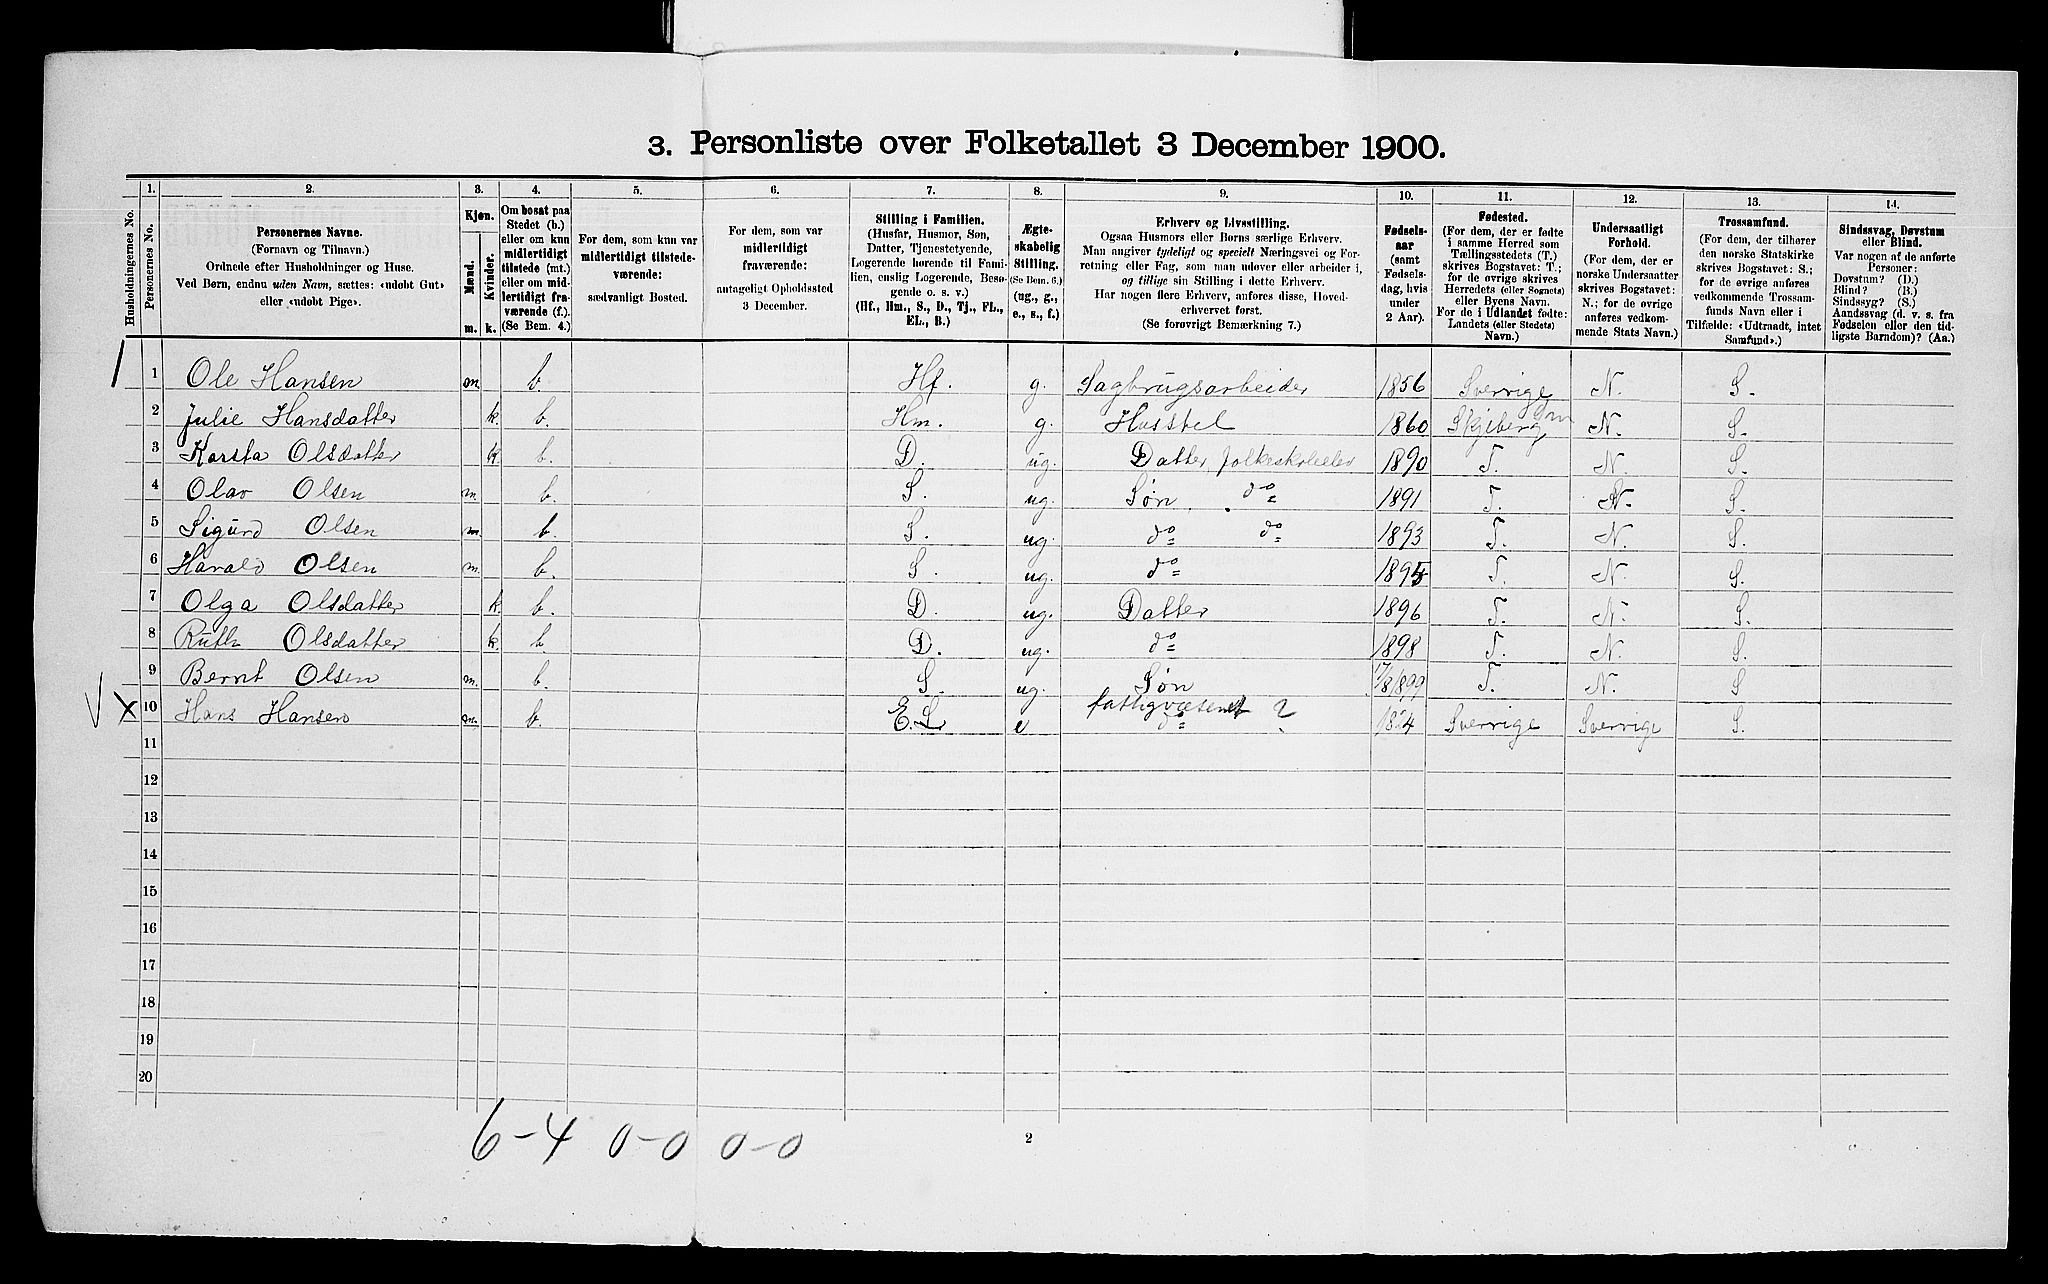 3. Personliste over Folketallet 3 December 1900.
Husholdningernes No.
1. Personernes No.
2. Personernes Navne.
(Fornavn og Tilnavn.)
Ordnede efter Husholdninger og Huse.
Ved Børn, endnu uden Navn, sættes: «udøbt Gut»
eller «udøbt Pige».
3. Kjøn.
Mænd. Kvinder.
m. k.
4. Om bosat paa
Stedet (b.)
eller om kun
midlertidigt
tilstede (mt.)
eller om mid-
lertidigt fra-
værende (f.).
(Se Bem. 4.)
5. For dem, som kun var
midlertidigt tilstede-
værende:
sædvanligt Bosted.
6. For dem, som var
midlertidigt
fraværende:
antageligt Opholdssted
3 December.
7. Stilling i Familien.
(Husfar, Husmor, Søn,
Datter, Tjenestetyende,
Logerende hørende til Fami-
lien, enslig Logerende, Besø-
gende o. s. v.)
(Hf., Hm., S., D., Tj., FL.,
EL., B.)
8. Ægte-
skabelig
Stilling.
(Se Bem. 6.)
(ug., g.,
e., s., f.)
9. Erhverv og Livsstilling.
Ogsaa Husmors eller Børns særlige Erhverv.
Man angiver tydeligt og specielt Næringsvei og For-
retning eller Fag, som man udøver eller arbeider i,
og tillige sin Stilling i dette Erhverv.
Har nogen flere Erhverv, anføres disse, Hoved-
erhvervet først.
(Se forøvrigt Bemærkning 7.)
10. Fødsels-
aar
(samt
Fødsels-
dag, hvis
under
2 Aar).
11. Fødested.
(For dem, der er fødte
i samme Herred som
Tællingsstedets (T.)
skrives Bogstavet: T.;
for de øvrige skrives
Herredets (eller Sognets)
eller Byens Navn.
For de i Udlandet fødte:
Landets (eller Stedets)
Navn.)
12. Undersaatligt
Forhold.
(For dem, der er
norske Undersaatter
skrives Bogstavet:
N.; for de øvrige
anføres vedkom-
mende Stats Navn.)
13. Trossamfund.
(For dem, der tilhører
den norske Statskirke
skrives Bogstavet: S.;
for de øvrige anføres
vedkommende Trossam-
funds Navn eller i
Tilfælde: «Udtraadt, intet
Samfund».)
14. Sindssvag, Døvstum
eller Blind.
Var nogen af de anførte
Personer:
Døvstum? (D.)
Blind? (B.)
Sindssyg? (S.)
Aandssvag (d. v. s. fra
Fødselen eller den tid-
ligste Barndom)? (Aa.)
1 1 Ole Hansen m. b. Hf. g. Sagbrugsarbeider 1856 Sverrige N. S.
2 Julie Hansdatter k. b. Hm. g. Husstel 1860 Skjeberg N. S.
3 Karsta Olsdatter k b. D. ug. Datter, folkeskoleelev 1890 T. N. S.
4 Olav Olsen m. b. S. ug. Søn do 1891 T. N. S.
5 Sigurd Olsen m. b. S. ug. do do 1893 T. N. S.
6 Harald Olsen m. b. S. ug. do 1895 T. N. S.
7 Olga Olsdatter k. b. D. ug. Datter 1896 T. N. S.
8 Ruth Olsdatter k. b D. ug. do 1898 T. N. S.
9 Bernt Olsen m. b. S. ug. Søn 17/8 1899 T. N. S
V x 10 Hans Hansen m. b. E.L. e fattigvæsenet ? do Sverrige Sverrige S.
11
12
13
14
15
16
17
18
19
20
6-4 0-0 0-0
2